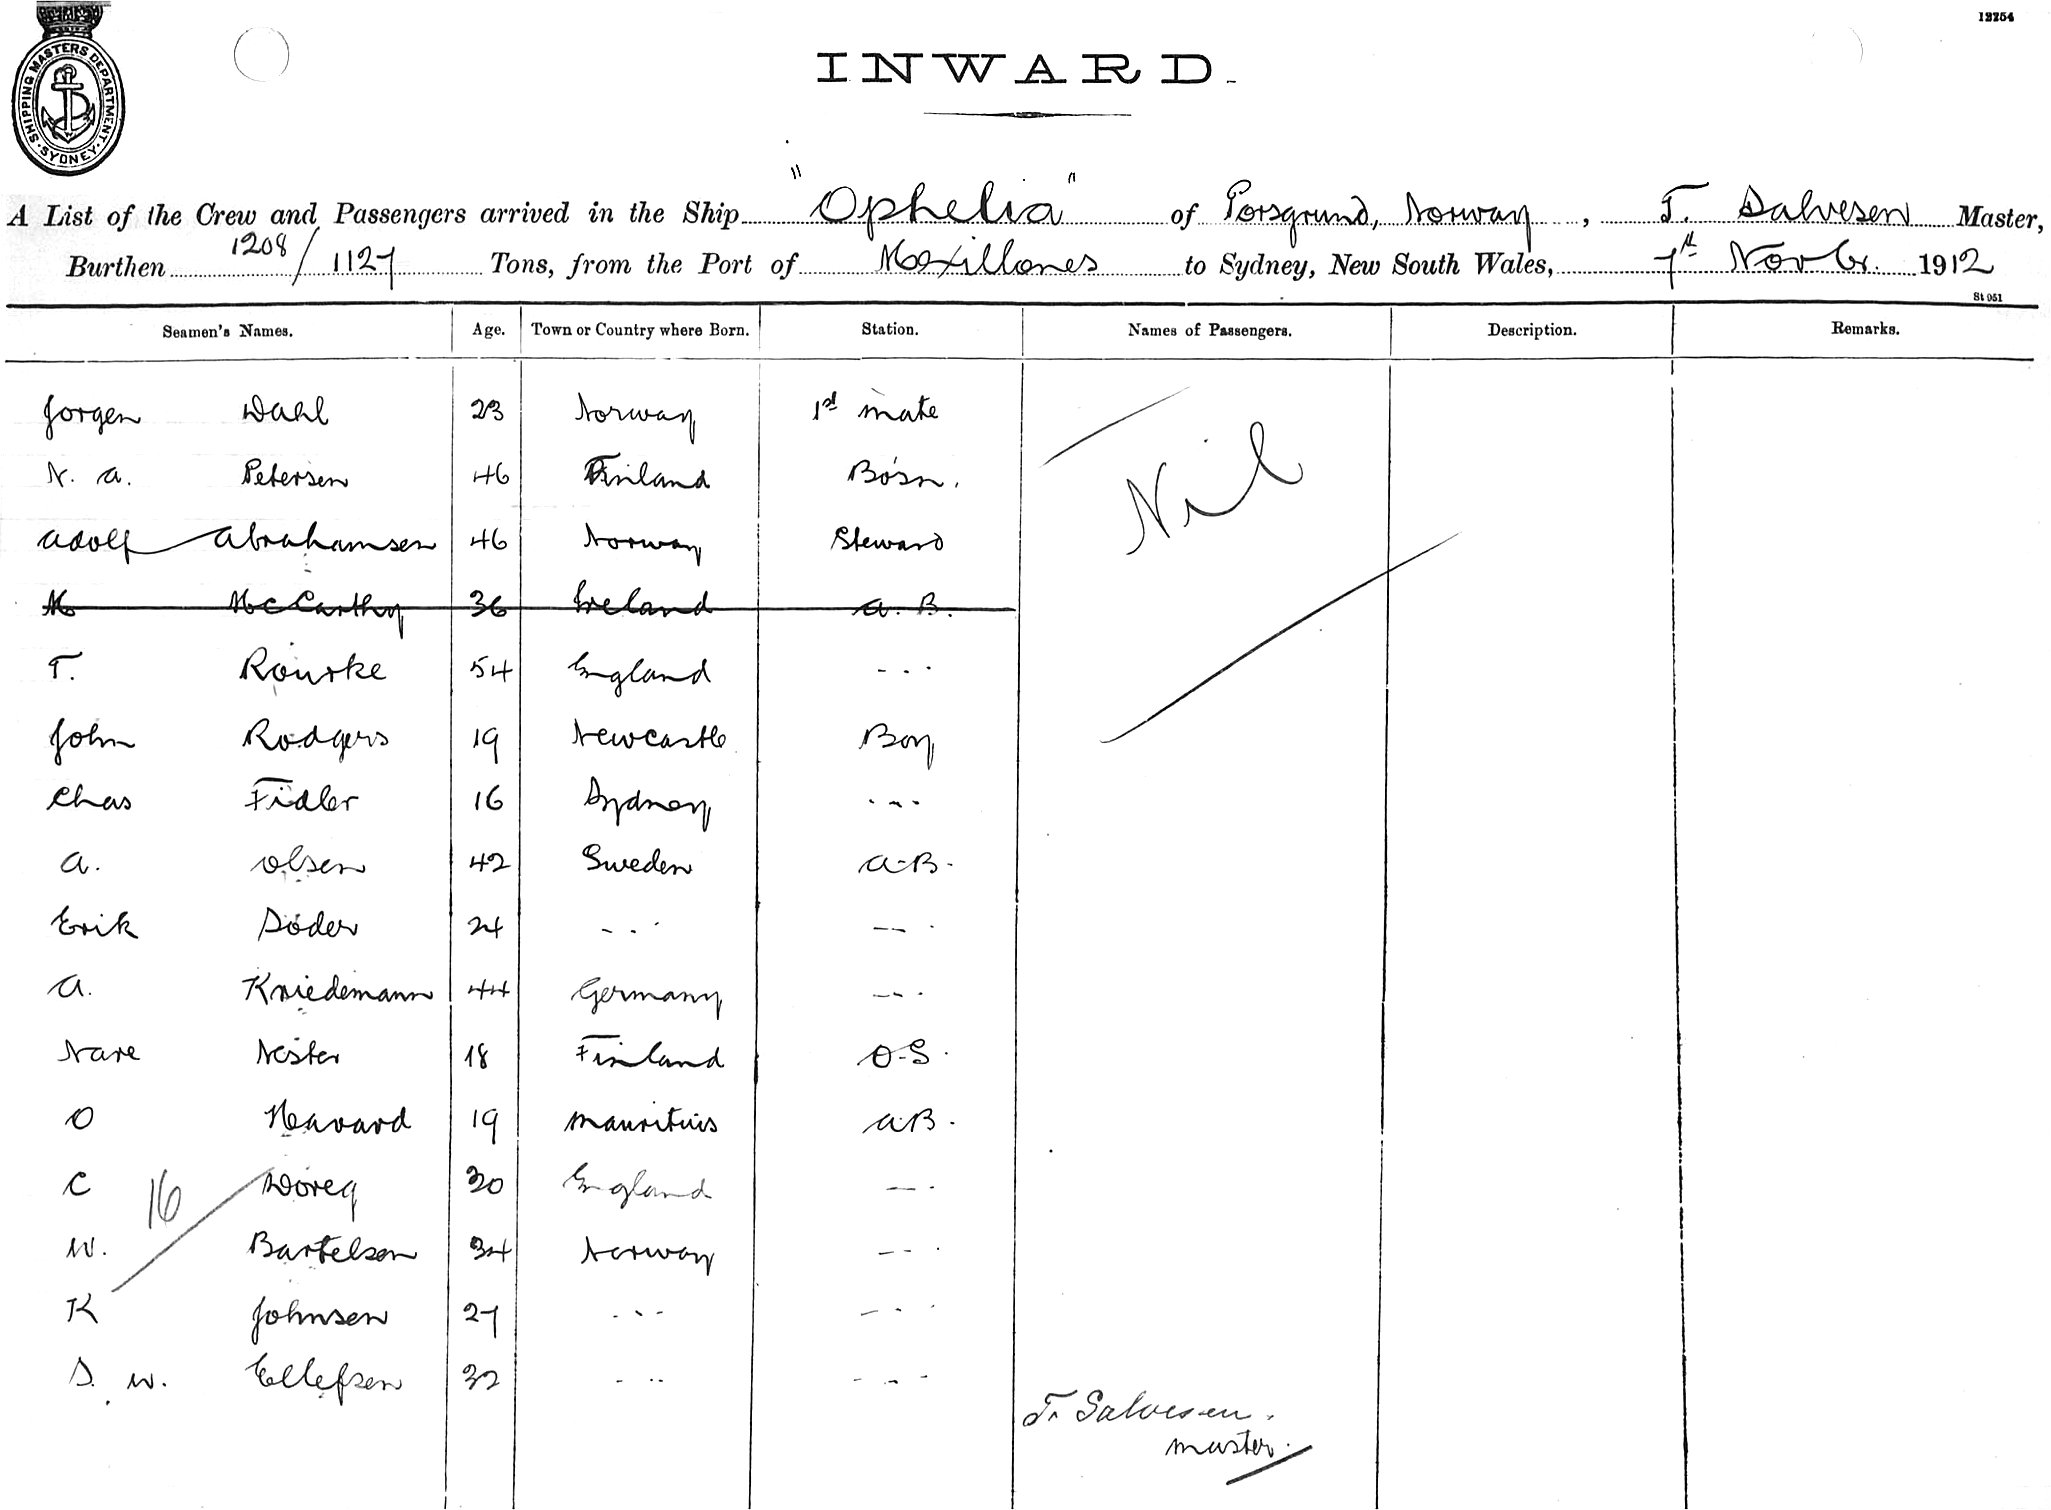 12254
SHIPPING MASTERS DEPARTMENT
SYDNEY
INWARD.
A List of the Crew and Passengers arrived in the Ship "Ophelia" of Porsgrund, Norway, T. Salvesen Master,
Burthen 1208/1127 Tons, from the Port of Mexillones to Sydney, New South Wales, 7th Novbr. 1912
St 051
Seamen's Names. Age. Town or Country where Born. Station. Names of Passengers. Description. Remarks.
Jorgen Dahl 23 Norway 1st mate
Nil
N. A. Petersen 46 Finland Bosn.
Adolf Abrahamsen 46 Norway Steward
M McCarthy 36 Ireland A. B.
T. Rourke 54 England - - -
John Rodgers 19 Newcastle Boy
Chas Fidler 16 Sydney - - -
A. Olsen 42 Sweden A-B-
Erik Söder 24 - - - - - -
A. Kriedemann 44 Germany - - -
Nare Nester 18 Finland O-S.
O Havard 19 Mauritius A.B.
C Dorey 30 England - - -
16
W. Bartelsen 34 Norway - - -
K Johnsen 27 - - - - - -
S. W. Ellefsen 32 - - - - - -
T. Salvesen.
master.